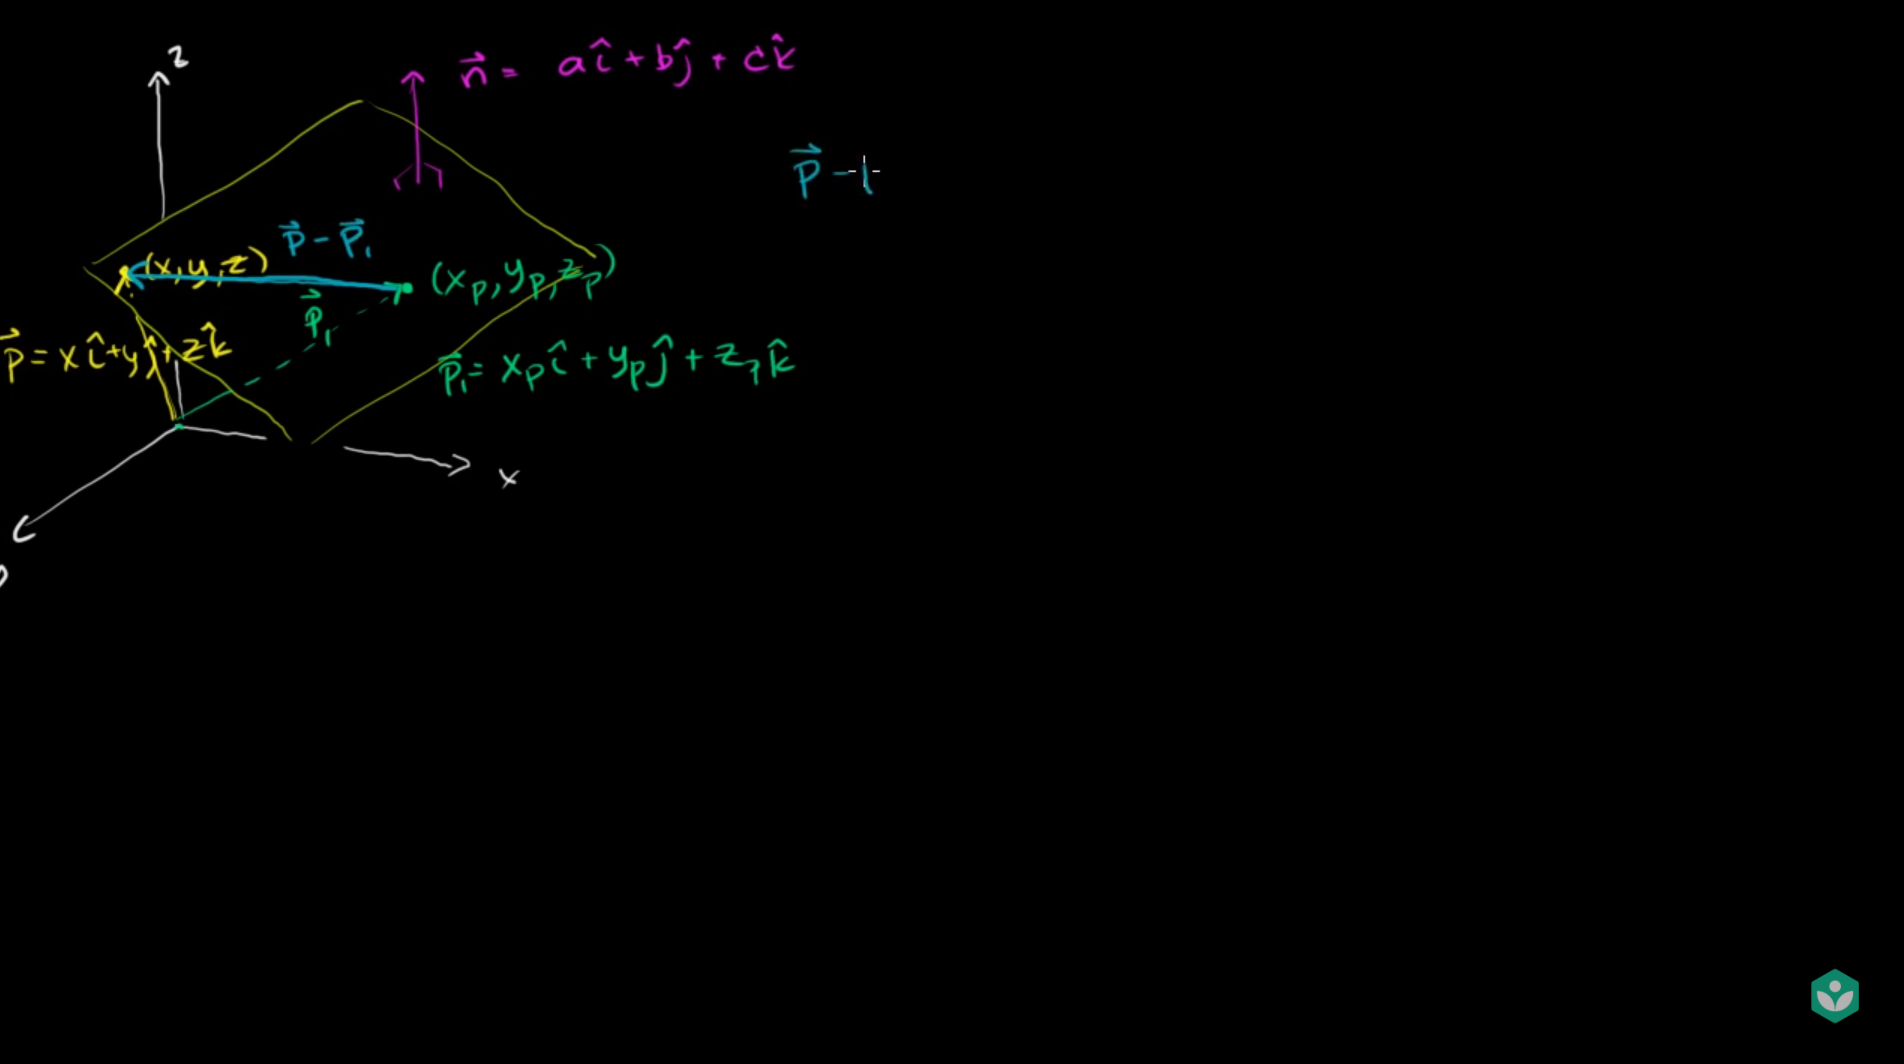 z
n⃗ = aî + bĵ + ck̂
p⃗ -
p⃗ - p⃗₁
(x, y, z)
(xₚ, yₚ, zₚ)
p⃗₁
p⃗ = xî + yĵ + zk̂
p⃗₁ = xₚî + yₚĵ + zₚk̂
x